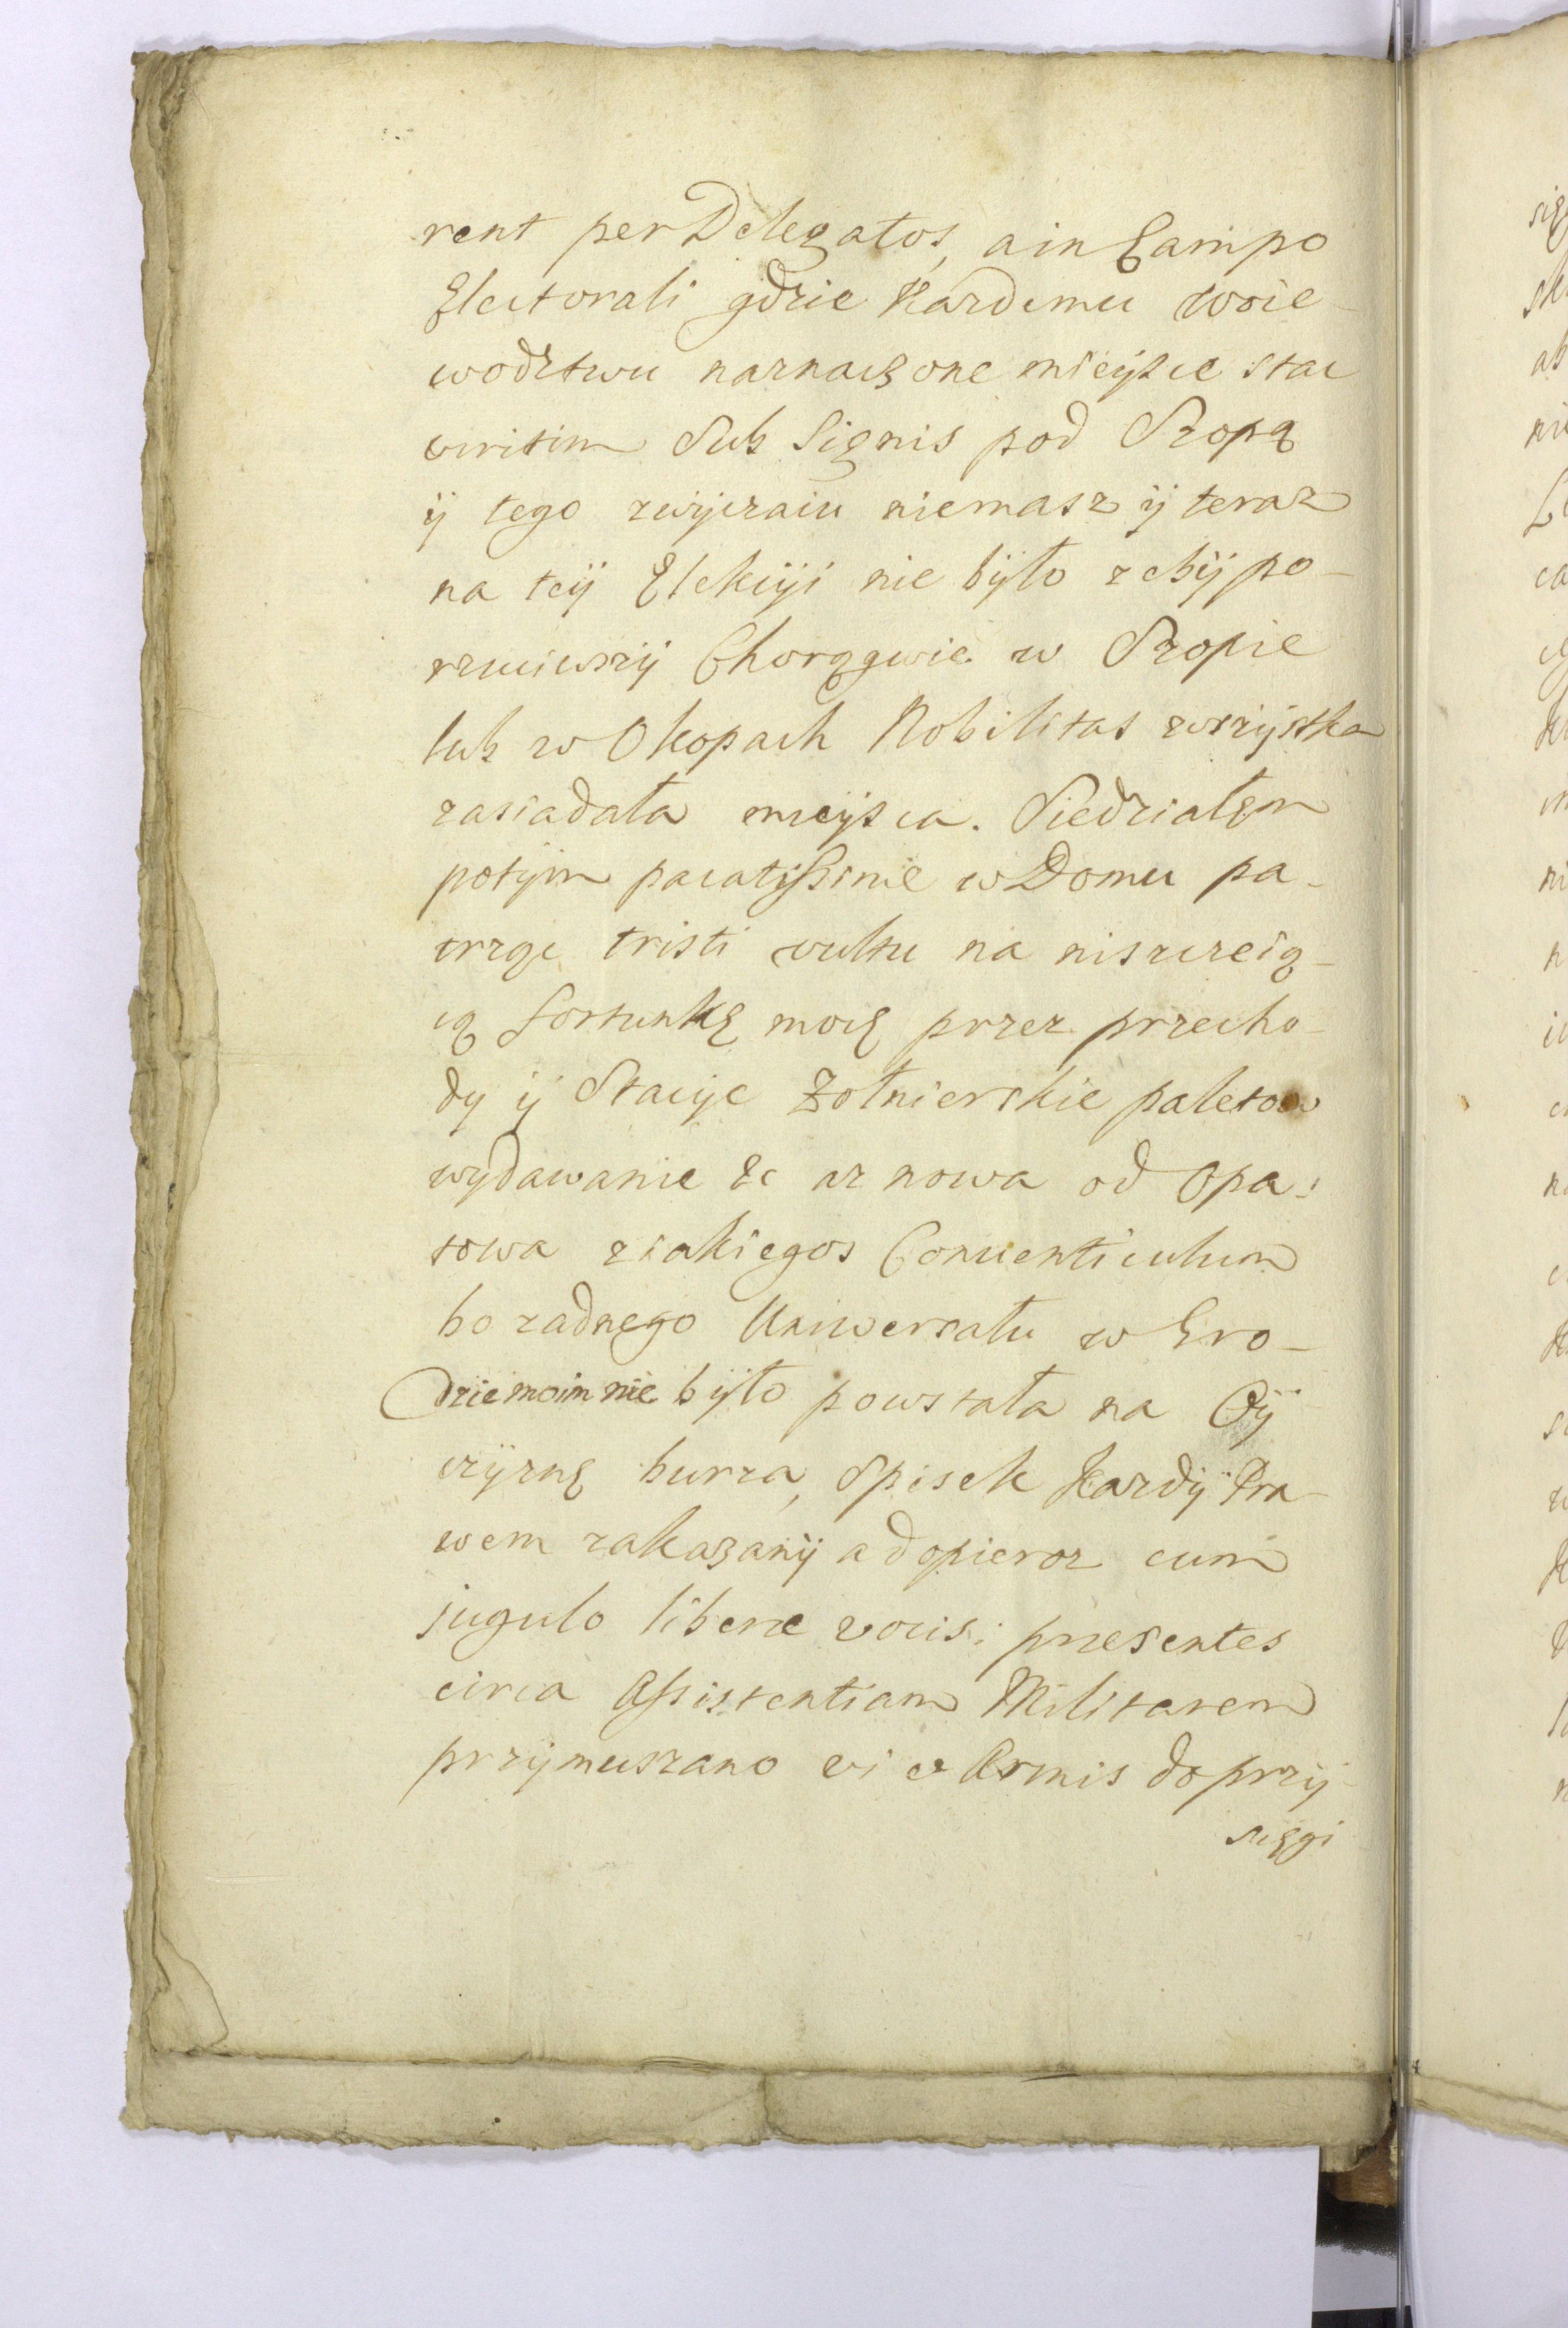 rent per Delegatos, a in Campo
Electorali gdzie Kazdemu Woie-
wodztwu naznaczone mieysce stac
wiritim Sub Signis pod Szopą
ÿ tego zwÿczaiu niemasz ÿ teraz
na teÿ Elekcÿi nie bÿło zebÿ po-
rzuciwszÿ Chorągwie w Szopie
lub w Okopach Nobilitas wszÿstka
zasiadała mieÿsca. Siedziałęm
potÿm pacatissime w Domu pa-
trząc tristi vultu na niszczeią-
cą fortunkę moię przez przecho-
dy ÿ Stacÿe Zołnierskie paletow
wydawanie &c az nowa od Opa-
towa z iakiegos Conventiculum
bo zadnego Uniwersału w Gro-
dzie moim nie bÿło powstała na Oÿ
czÿznę burza, Spisek Kazdÿ Pra-
wem zakazanÿ a dopieroz cum
jugulo liberæ vocis; præsentes
circa Assistentiam Militarem
przÿmuszano vi et Armis do przÿ-
sięgi